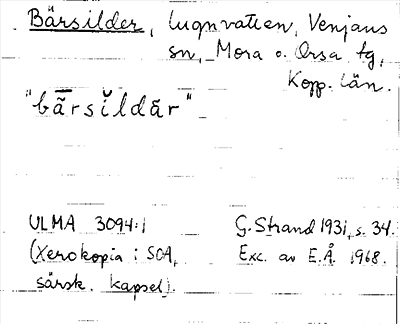 Bärsilder, lugnvatten, Venjans
sn, Mora o. Orsa tg,
Kopp. län.
"bā̆rsĭldär"
ULMA 3094:1 G. Strand 1931, s. 34.
(Xerokopia i SOA, Exc. av E.Å. 1968.
särsk. kapsel).